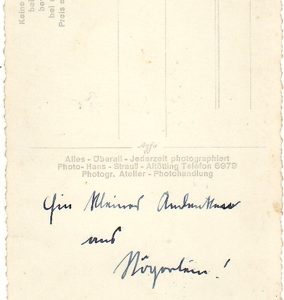 Keine
bei
bei
Preis
Agfa
Alles - Überall - Jederzeit photographiert
Photo-Hans - Strauß - Altötting Telefon 6979
Photogr. Atelier - Photohandlung
Ein kleines Andenken
aus